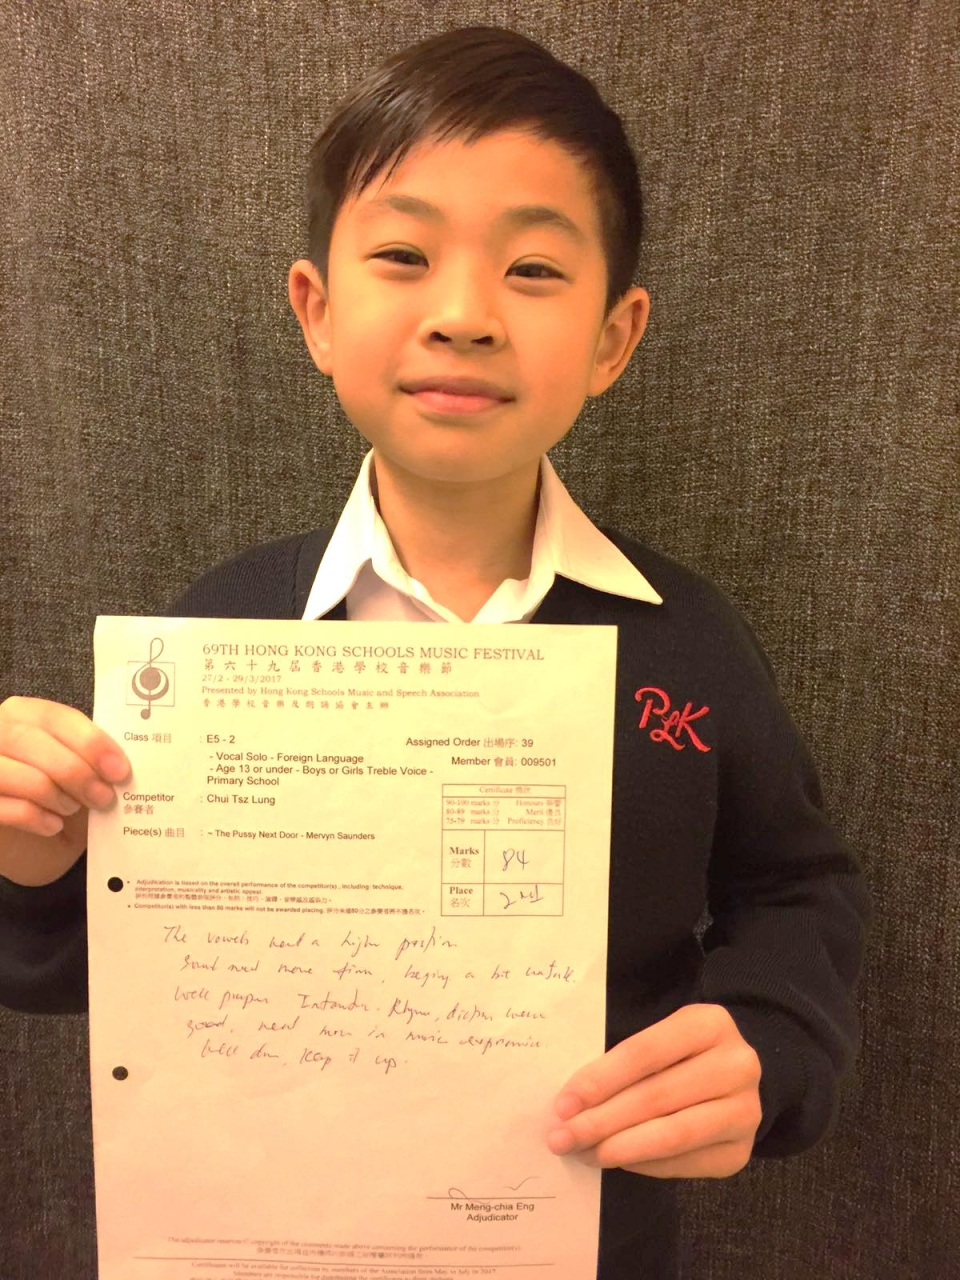 69TH HONG KONG SCHOOLS MUSIC FESTIVAL
第六十九屆香港學校音樂節
27/2 - 29/3/2017
Presented by Hong Kong Schools Music and Speech Association
香港學校音樂及朗誦協會主辦
Class 項目 : E5 - 2 Assigned Order 出場序: 39
- Vocal Solo - Foreign Language Member 會員: 009501
- Age 13 or under - Boys or Girls Treble Voice -
Primary School
Competitor : Chui Tsz Lung
參賽者
Piece(s) 曲目 : ~ The Pussy Next Door - Mervyn Saunders
Certificate
90-100 marks 分 Honours
80-89 marks 分 Merit
75-79 marks 分 Proficiency
Marks 84
分數
Place 2nd
名次
PLK
Adjudication is based on the overall performance of the competitor(s), including: technique,
interpretation, musicality and artistic appeal.
Competitor(s) with less than 80 marks will not be awarded placing.
The vowels need a higher position
need more, a bit
well Rhyme, diction were
good, need more in music expression
Well done, keep it up.
Mr Meng-chia Eng
Adjudicator
The adjudicator reserves © copyright of the comments made above concerning the performance of the competitor(s).
Certificates will be available for collection by members of the Association from May to July in 2017.